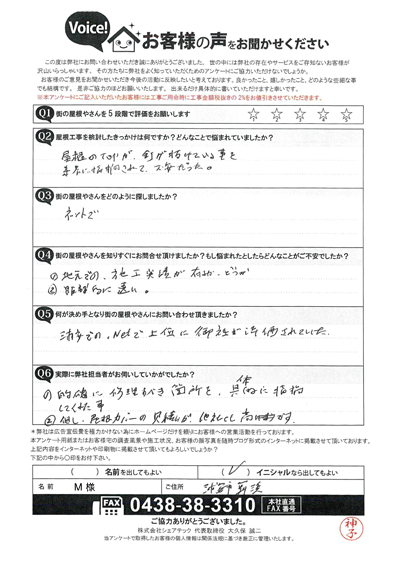 Voice!
お客様の声をお聞かせください
この度は弊社にお問い合わせいただき誠にありがとうございました。世の中には弊社の存在やサービスをご存知ないお客様が
沢山いらっしゃいます。その方たちに弊社をよく知っていただくためのアンケートにご協力いただけないでしょうか。
お客様のご意見をお聞かせいただき今後の活動に反映したいと考えております。良かったこと、嬉しかったこと、どのような些細な事
でも結構です。是非ご協力のほどお願いいたします。出来るだけ具体的に書いていただけますと幸いです。
※本アンケートにご記入いただいたお客様には工事ご用命時に工事金額税抜きの2%をお値引きさせていただきます。
Q1 街の屋根やさんを5段階で評価をお願いします ☆ ☆ ☆ ☆ ☆
Q2 屋根工事を検討したきっかけは何ですか？どんなことで悩まれていましたか？
屋根の
釘が抜けている事を
指摘されて、不安だった。
Q3 街の屋根やさんをどのように探しましたか？
ネットで
Q4 街の屋根やさんを知りすぐにお問合せ頂けましたか？もし悩まれたとしたらどんなことがご不安でしたか？
施工実績が有るか、どうか
②
Q5 何が決め手となり街の屋根やさんにお問い合わせ頂けましたか？
Netで上位に御社が評価されていた。
Q6 実際に弊社担当者がお伺いしていかがでしたか？
①的確に修理すべき箇所を、具体的に指摘
してくれた事
②但し、屋根カバーの見積が他社比し高価格
＊弊社は広告宣伝費を極力かけない為にホームページだけを頼りにお客様への営業活動を行っております。
本アンケート用紙またはお客様宅の調査風景や施工状況、お客様の顔写真を随時ブログ形式のインターネットに掲載させて頂いております。
上記内容をインターネットや印刷物に掲載させて頂いてもよろしいでしょうか？
下記の中から〇印をお付け下さい。
（　）名前を出してもよい （✓）イニシャルなら出してもよい
名前 M 様 ご住所 浦安市
FAX 0438-38-3310 本社直通 FAX番号
ご協力ありがとうございました。
株式会社シェアテック 代表取締役 大久保 誠二
当アンケートで取得したお客様の個人情報は関係法規に基づき厳正に管理いたします。
神子